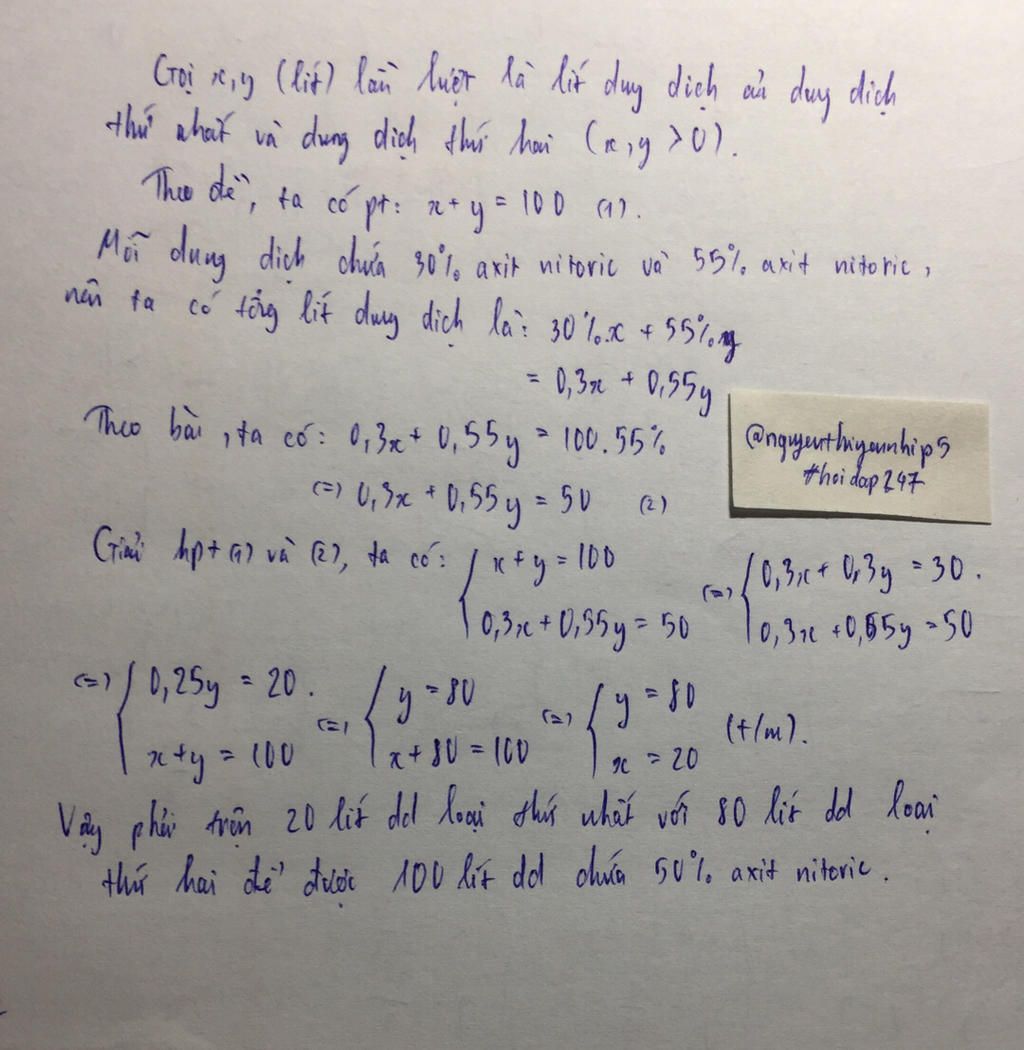 Gọi x, y (lít) lần lượt là lít dung dịch củả dung dịch
thứ nhất và dung dịch thứ hai (x, y > 0).
Theo đề, ta có pt: x + y = 100 (1).
Mỗi dung dịch chứa 30% axit nitoric và 55% axit nitoric,
nên ta có tổng lít dung dịch là: 30%.x + 55%.y
= 0,3x + 0,55y
Theo bài, ta có: 0,3x + 0,55y = 100.55%
(=) 0,3x + 0,55y = 50 (2)
@nguyenthiyennhip5
#hoidap247
Giải hpt (1) và (2), ta có: { x + y = 100 0,3x + 0,55y = 50 (=) { 0,3x + 0,3y = 30. 0,3x + 0,55y = 50
(=) { 0,25y = 20. x + y = 100 (=) { y = 80 x + 80 = 100 (=) { y = 80 x = 20 (t/m).
Vậy phải trộn 20 lít dd loại thứ nhất với 80 lít dd loại
thứ hai để được 100 lít dd chứa 50% axit nitoric.